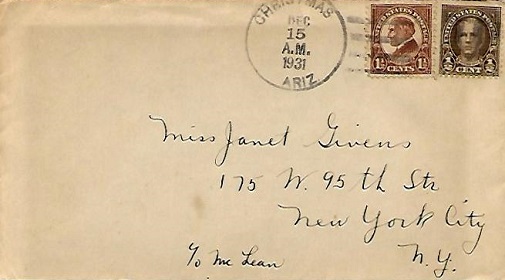 CHRISTMAS
DEC
15
A.M.
1931
ARIZ.
UNITED STATES POSTAGE
1½ CENTS 1½
UNITED STATES POSTAGE
½ CENT ½
Miss Janet Givens
175 W. 95th Str
New York City
N.Y.
c/o Mc Lean